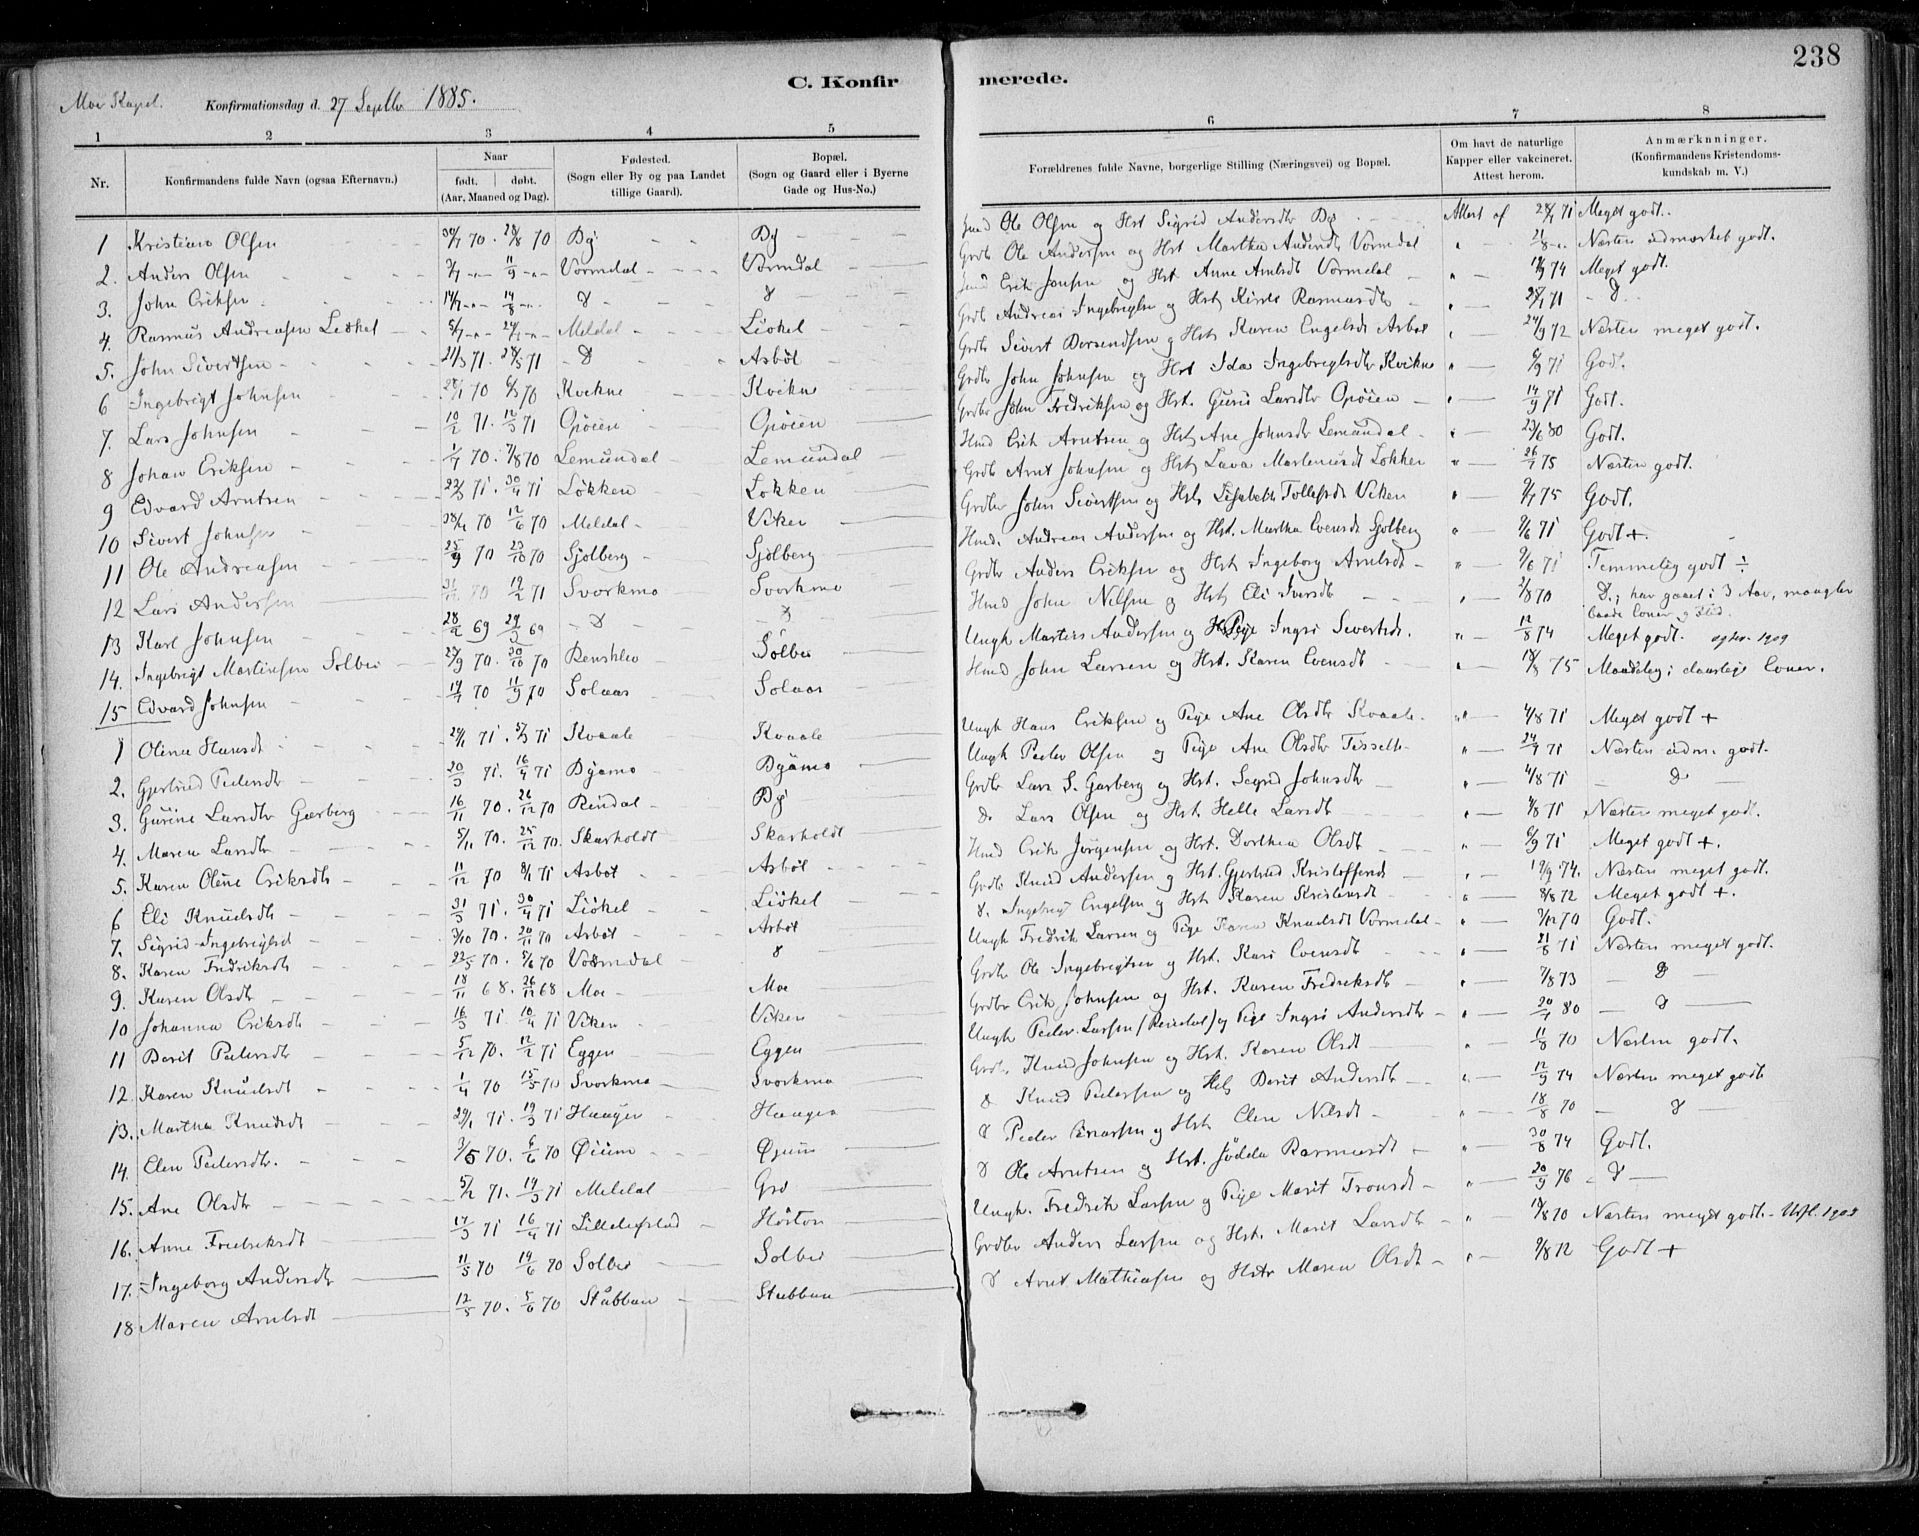 238
C. Konfirmerede.
Moe Kapel. Konfirmationsdag d. 27 Septbr 1885.
1 2 3 4 5 6 7 8
Nr. Konfirmandens fulde Navn (ogsaa Efternavn.) Naar født. døbt. (Aar, Maaned og Dag). Fødested. (Sogn eller By og paa Landet tillige Gaard). Bopæl. (Sogn og Gaard eller i Byerne Gade og Hus-No.) Forældrenes fulde Navne, borgerlige Stilling (Næringsvei) og Bopæl. Om havt de naturlige Kapper eller vakcineret. Attest herom. Anmærknninger. (Konfirmandens Kristendomskundskab m. V.)
1 Kristian Olsen 30/7 70. 28/8 70 By By Ole Olsen og Hst Sigrid Andersdtr By Attest af 28/7 71 Meget godt.
2. Anders Olsen 3/7 -„- 11/9 -„- Vormdal Vormdal Grdbr Ole Andersen og Hst Martha Andersdt Vormdal „ 21/8 -„- Næsten udmærket godt.
3. John Eriksen 14/7 -„- 14/8 -„- D D Erik Jonsen og Hst Anne Arntsdt Vormdal „ 74 Meget godt.
4. Rasmus Andreasen Liøkel 5/7 -„- 24/7 -„- Meldal Liøkel Grdbr Andreas Ingebrigtsen og Hst Kirsti Rasmusdtr „ 28/7 71 - D -
5. John Sivertsen 21/3 71. 28/5 71 - D Asbøl Grdbr Sivert Bersendsen og Hst Karen Engelsdt Asbøl „ 24/9 72 Næsten meget godt.
6 Ingebrigt Johnsen 28/1 70 6/3 70 Kvikne Kvikne Grdbr John Johnsen og Hst Ida Ingebrigtsdtr Kvikne „ 6/9 71 Godt.
7. Lars Johnsen 10/2 71. 12/3 71 Opøien Opøien Grdbr John Fredriksen og Hst. Guru Larsdtr Opøien „ 14/9 71 Godt.
8 Johan Eriksen 1/7 70. 7/8 70 Lemundal Lemundal Hmd Erik Arntsen og Hst Ane Johnsdtr Lemundal „ 23/6 80 Godt.
9 Edvard Arntsen 22/3 71. 30/4 71 Løkken Løkken Grdbr Arnt Johnsen og Hst Lava Martinusdt Løkken „ 26/7 75 Næsten godt.
10 Sivert Johnsen 28/4 70 12/6 70 Meldal Viken Grdbr John Sivertsen og Hst Lisabeth Tollefsdt Viken „ 9/7 75 Godt.
11 Ole Andreasen 25/9 70 23/10 70 Sjølberg Sjølberg Hmd. Andreas Andersen og Hst. Martha Evensdt Sjølberg „ 9/6 71 Godt +
12 Lars Andersen 31/12 70 19/2 71 Svorkmo Svorkmo Grdbr Anders Eriksen og Hst Ingeborg Arntsdt „ 9/6 71 Temmelig godt ÷
13 Karl Johnsen 28/2 69 29/3 69 - D - D Hmd John Nilsen og Hst Eli Iversdt „ 2/8 70 D.; har gaaet i 3 Aar, mangler
baade Evner og Flid.
14. Ingebrigt Martinsen Solbu 27/9 70. 30/10 70 Renshlev Solbu Ungk. Martin Andersen og Pige Ingrø Sivertsdt. „ 12/8 74 Meget godt. 1909
15 Edvard Johnsen 14/7 70 11/9 70 Solaas Solaas Hmd John Larsen og Hst. Karen Evensdt „ 18/8 75 Maadelig; daarlige Evner.
1 Oline Hansdt 29/1 71. 5/3 71 Kvaale Kvaale Ungk Hans Eriksen og Pige Ane Olsdtr Kvaale „ 4/8 71 Meget godt +
2. Gjertrud Pedersdtr 20/3 71. 16/4 71 Byämo Byämo Ungk Peder Olsen og Pige Ane Olsdtr „ 24/7 71 Næsten udm. godt.
3. Gurine Larsdtr Garberg 16/11 70. 26/12 70 Rindal By Grdbr Lars S. Garberg og Hst. Segrid Johnsdtr „ 4/8 71 - D -
4. Maren Larsdtr 5/11 70. 25/12 70 Skarholdt Skarholdt D. Lars Olsen og Hst Helle Larsdt „ 4/8 71 Næsten meget god.
5. Karen Oline Eriksdtr 11/12 70 8/1 71 Asbøl Asbøl Hmd Erik Jørgensen og Hst. Dorthea Olsdt „ 6/9 71 Meget godt +.
6 Eli Knudsdtr 31/3 71. 30/4 71 Liökel Liökel Grdbr Knud Andersen og Hst. Gjertrud Kristoffersd „ 19/9 74. Næsten meget godt.
7. Sigrid Ingebrigtsd 3/10 70. 20/11 70 Asbøl Asbøl D. Ingebrigt Engelsen og Hst Karen Kristensdt „ 8/8 72 Meget godt +.
8. Karen Fredriksdtr 22/5 70. 5/6 70 Vormdal D Ungk Fredrik Larsen og Pige Karen Knudsdt Vormdal „ 9/12 70 Godt.
9. Karen Olsdt 18/11 68. 26/12 68 Moe Moe Grdbr Ole Ingebrigtsen og Hst. Kari Evensdt „ 21/8 71 Næsten meget godt.
10 Johanna Eriksdt 16/3 71 10/4 71 Viken Viken Grdbr Erik Johnsen og Hst. Karen Fredriksdt „ 7/8 73 D -
11 Berit Pedersdtr 5/12 70. 12/2 71 Eggen Eggen Ungk Peder Larsen (Rindal) og Pige Ingrø Andersdtr „ 20/7 80 - D -
12. Karen Knudsdt 1/4 70 15/5 70 Svorkmo Svorkmo Grdbr. Knud Johnsen og Hst. Karen Olsdt „ 11/8 70 Næsten godt.
13. Martha Knudsdt 29/1 71. 19/3 71 Haugen Haugen D Knud Pedersen og Hst Berit Andersdt „ 12/9 74 Næsten meget godt
14. Elen Pedersdtr. 3/5 70. 6/6 70 Øium Øium D Peder Einarsen og Hst Elen Nilsdt „ 18/8 70 - D -
15. Ane Olsdtr 5/2 71. 19/3 71 Meldal Gro D Ole Arntsen og Hst. Jødda Rasmusdt „ 30/8 74 Godt.
16. Anne Fredriksdt 17/3 71 16/4 71 Hoston Ungk. Fredrik Larsen og Pige Marit Tronsdt „ 20/9 76 - D -
17. Ingeborg Andersdtr 11/5 70 19/6 70 Solbu Solbu Grdbr Anders Larsen og Hst. Marit Larsdt „ 18/8 70 Næsten meget godt - Utfl. 1902
18 Maren Arntsdt 12/5 70. 5/6 70 Stubban Stubban D Arnt Mathiasen og Hstr Maren Olsdt „ 9/8 72 Godt +